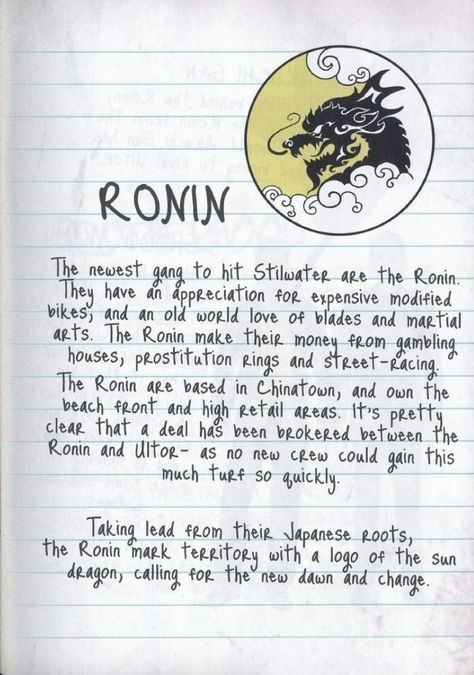 RONIN
The newest gang to hit Stilwater are the Ronin.
They have an appreciation for expensive modified
bikes, and an old world love of blades and martial
arts. The Ronin make their money from gambling
houses, prostitution rings and street-racing.
The Ronin are based in Chinatown, and own the
beach front and high retail areas. It's pretty
clear that a deal has been brokered between the
Ronin and Ultor- as no new crew could gain this
much turf so quickly.
Taking lead from their Japanese roots,
the Ronin mark territory with a logo of the sun
dragon, calling for the new dawn and change.